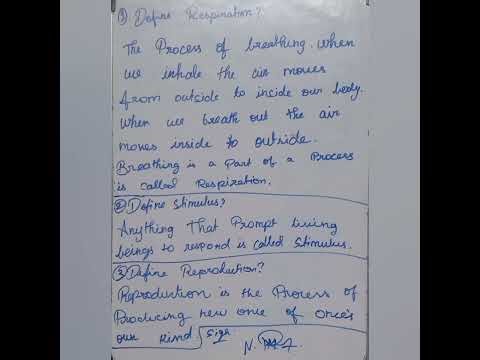 ① Define Respiration?
The Process of breathing. when
we inhale the air moves
from outside to inside our body.
When we breath out the air
moves inside to outside.
Breathing is a Part of a Process
is called Respiration.
② Define Stimulus?
Anything That Prompt living
beings to respond is called Stimulus.
③ Define Reproduction?
Reproduction is the Process of
Producing new one of
our kind Sign
N.